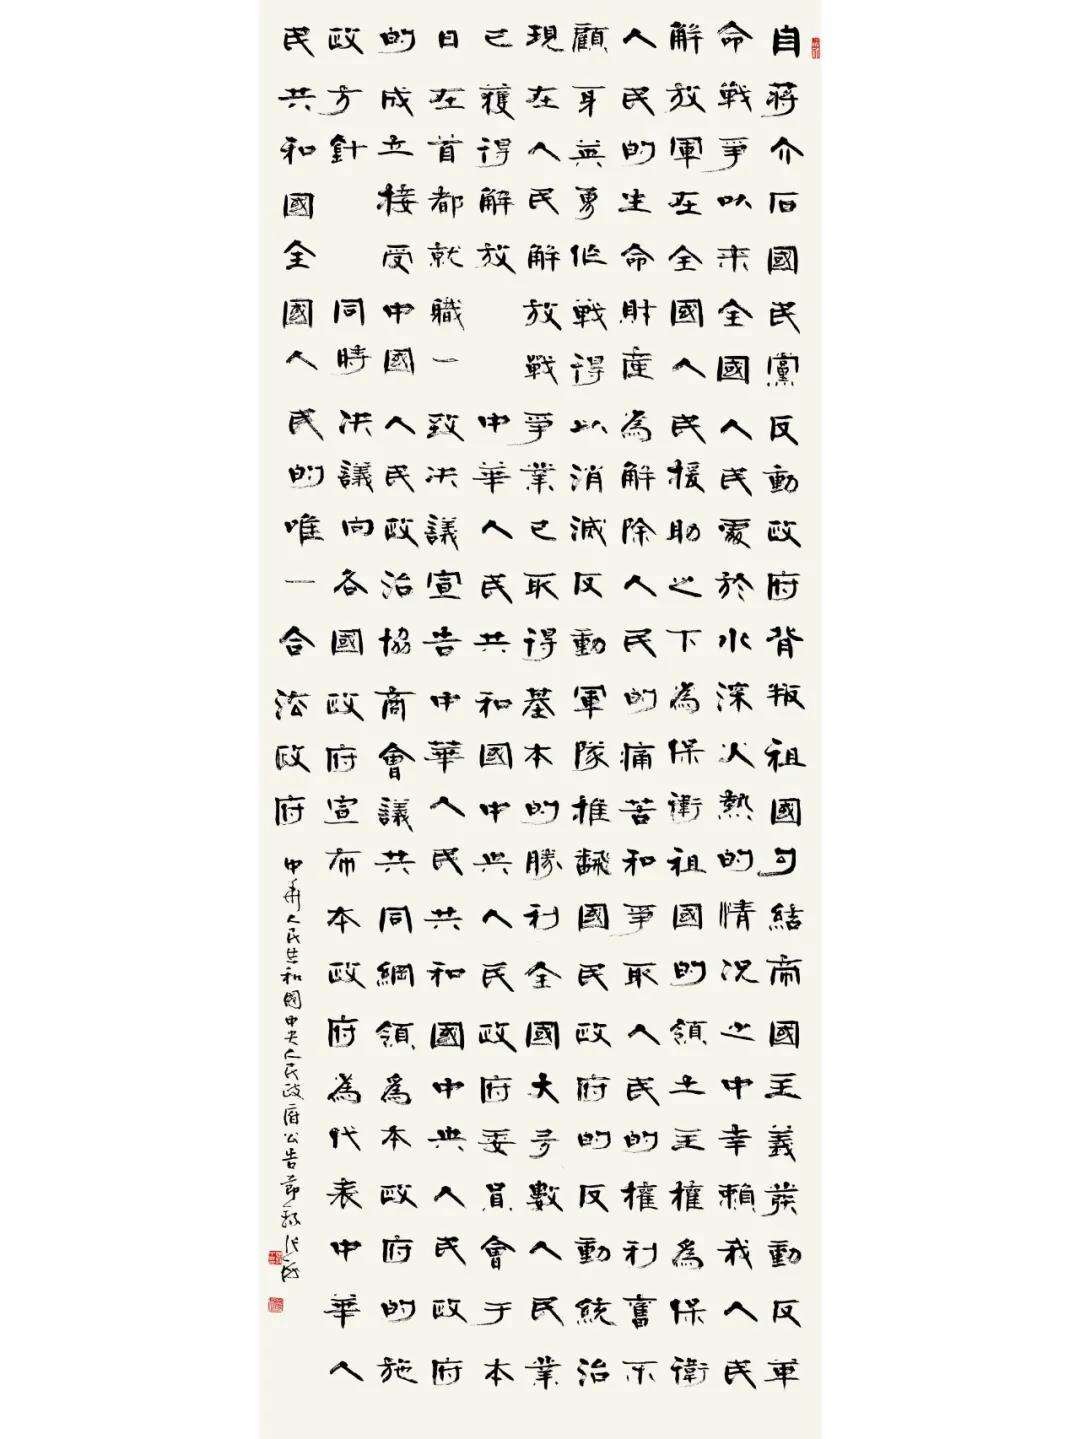 自蔣介石國民黨反動政府背叛祖國勾結帝國主義發動反革
命戰爭以来全國人民處於水深火熱的情况之中幸賴我人民
解放軍在全國人民援助之下為保衛祖國的領土主權為保衛
人民的生命財產為解除人民的痛苦和爭取人民的權利奮不
顧身英勇作戰得以消滅反動軍隊推翻國民政府的反動統治
現在人民解放戰爭業已取得基本的勝利全國大多數人民業
已獲得解放 中華人民共和國中央人民政府委員會于本
日在首都就職一致决議宣告中華人民共和國中央人民政府
的成立接受中國人民政治協商會議共同綱領為本政府的施
政方針 同時决議向各國政府宣布本政府為代表中華人
民共和國全國人民的唯一合法政府
中華人民共和國中央人民政府公告節録